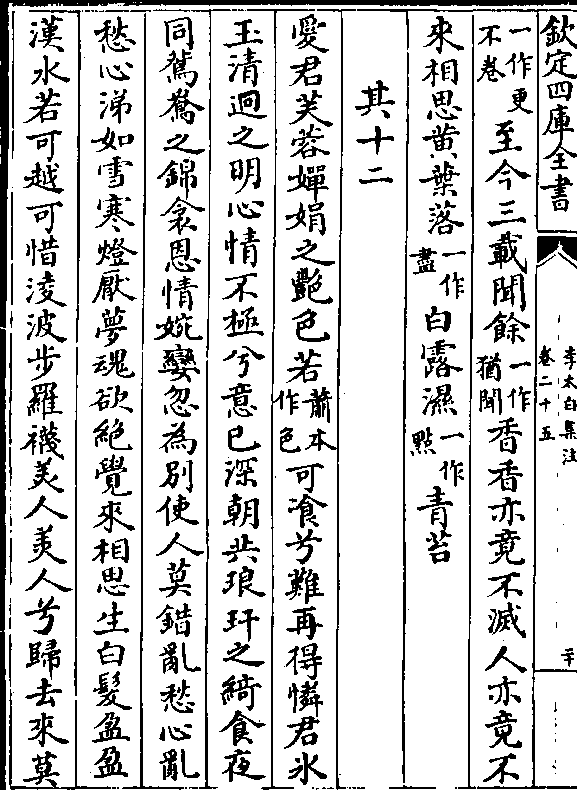 欽定四庫全書
李太白集注
卷二十五
二十
一作更不卷至今三載聞餘一作猶聞香香亦竟不滅人亦竟不
來相思黄葉落一作盡白露濕一作點青苔
其十二
愛君芙蓉嬋娟之艷色若蕭本作色可飡兮難再得憐君氷
玉清迥之明心情不極兮意已深朝共琅玕之綺食夜
同鴛鴦之錦衾恩情婉孌忽為别使人莫錯亂愁心亂
愁心涕如雪寒燈厭夢魂欲絶覺來相思生白髮盈盈
漢水若可越可惜淩波步羅襪美人美人兮歸去來莫